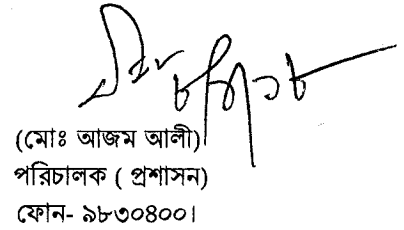 (মোঃ আজম আলী)
পরিচালক ( প্রশাসন)
ফোন- ৯৮৩০৪০০।